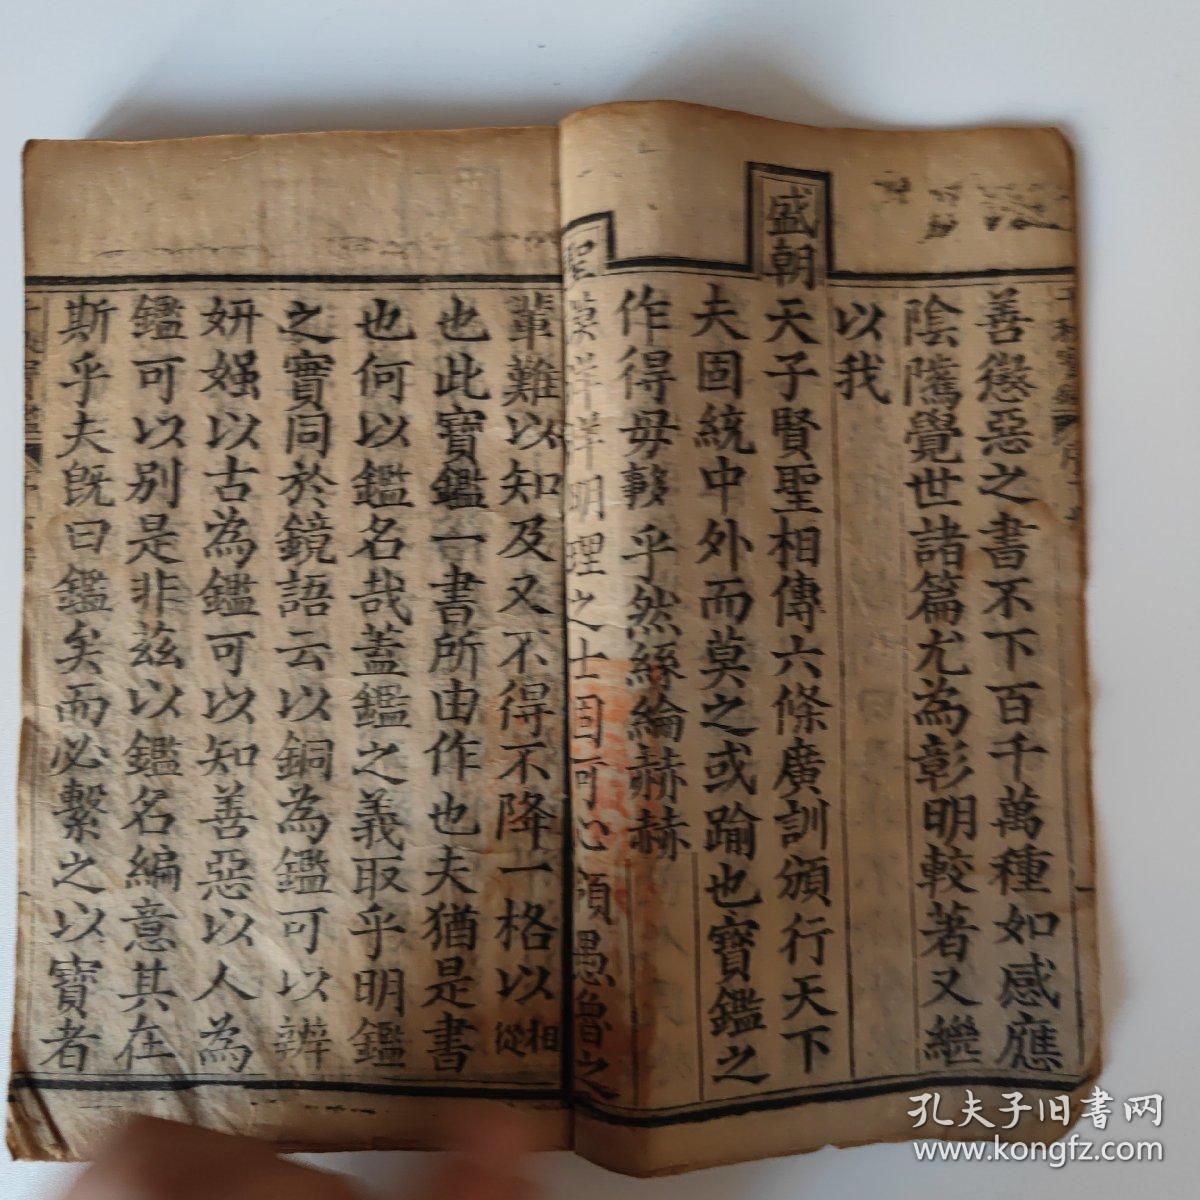 善懲惡之書不下百千萬種如感應
陰隲覺世諸篇尤為彰明較著又繼
以我
盛朝天子賢聖相傳六條廣訓頒行天下
夫固統中外而莫之或踰也寶鑑之
作得毋贅乎然絲綸赫赫
聖謨洋洋明理之士固可心領愚魯之
輩難以知及又不得不降一格以相從
也此寶鑑一書所由作也夫猶是書
也何以鑑名哉蓋鑑之義取乎明鑑
之寶同於鏡語云以銅為鑑可以辨
妍媸以古為鑑可以知善惡以人為
鑑可以別是非茲以鑑名編意其在
斯乎夫既曰鑑矣而必繫之以寶者
孔夫子旧書网
www.kongfz.com